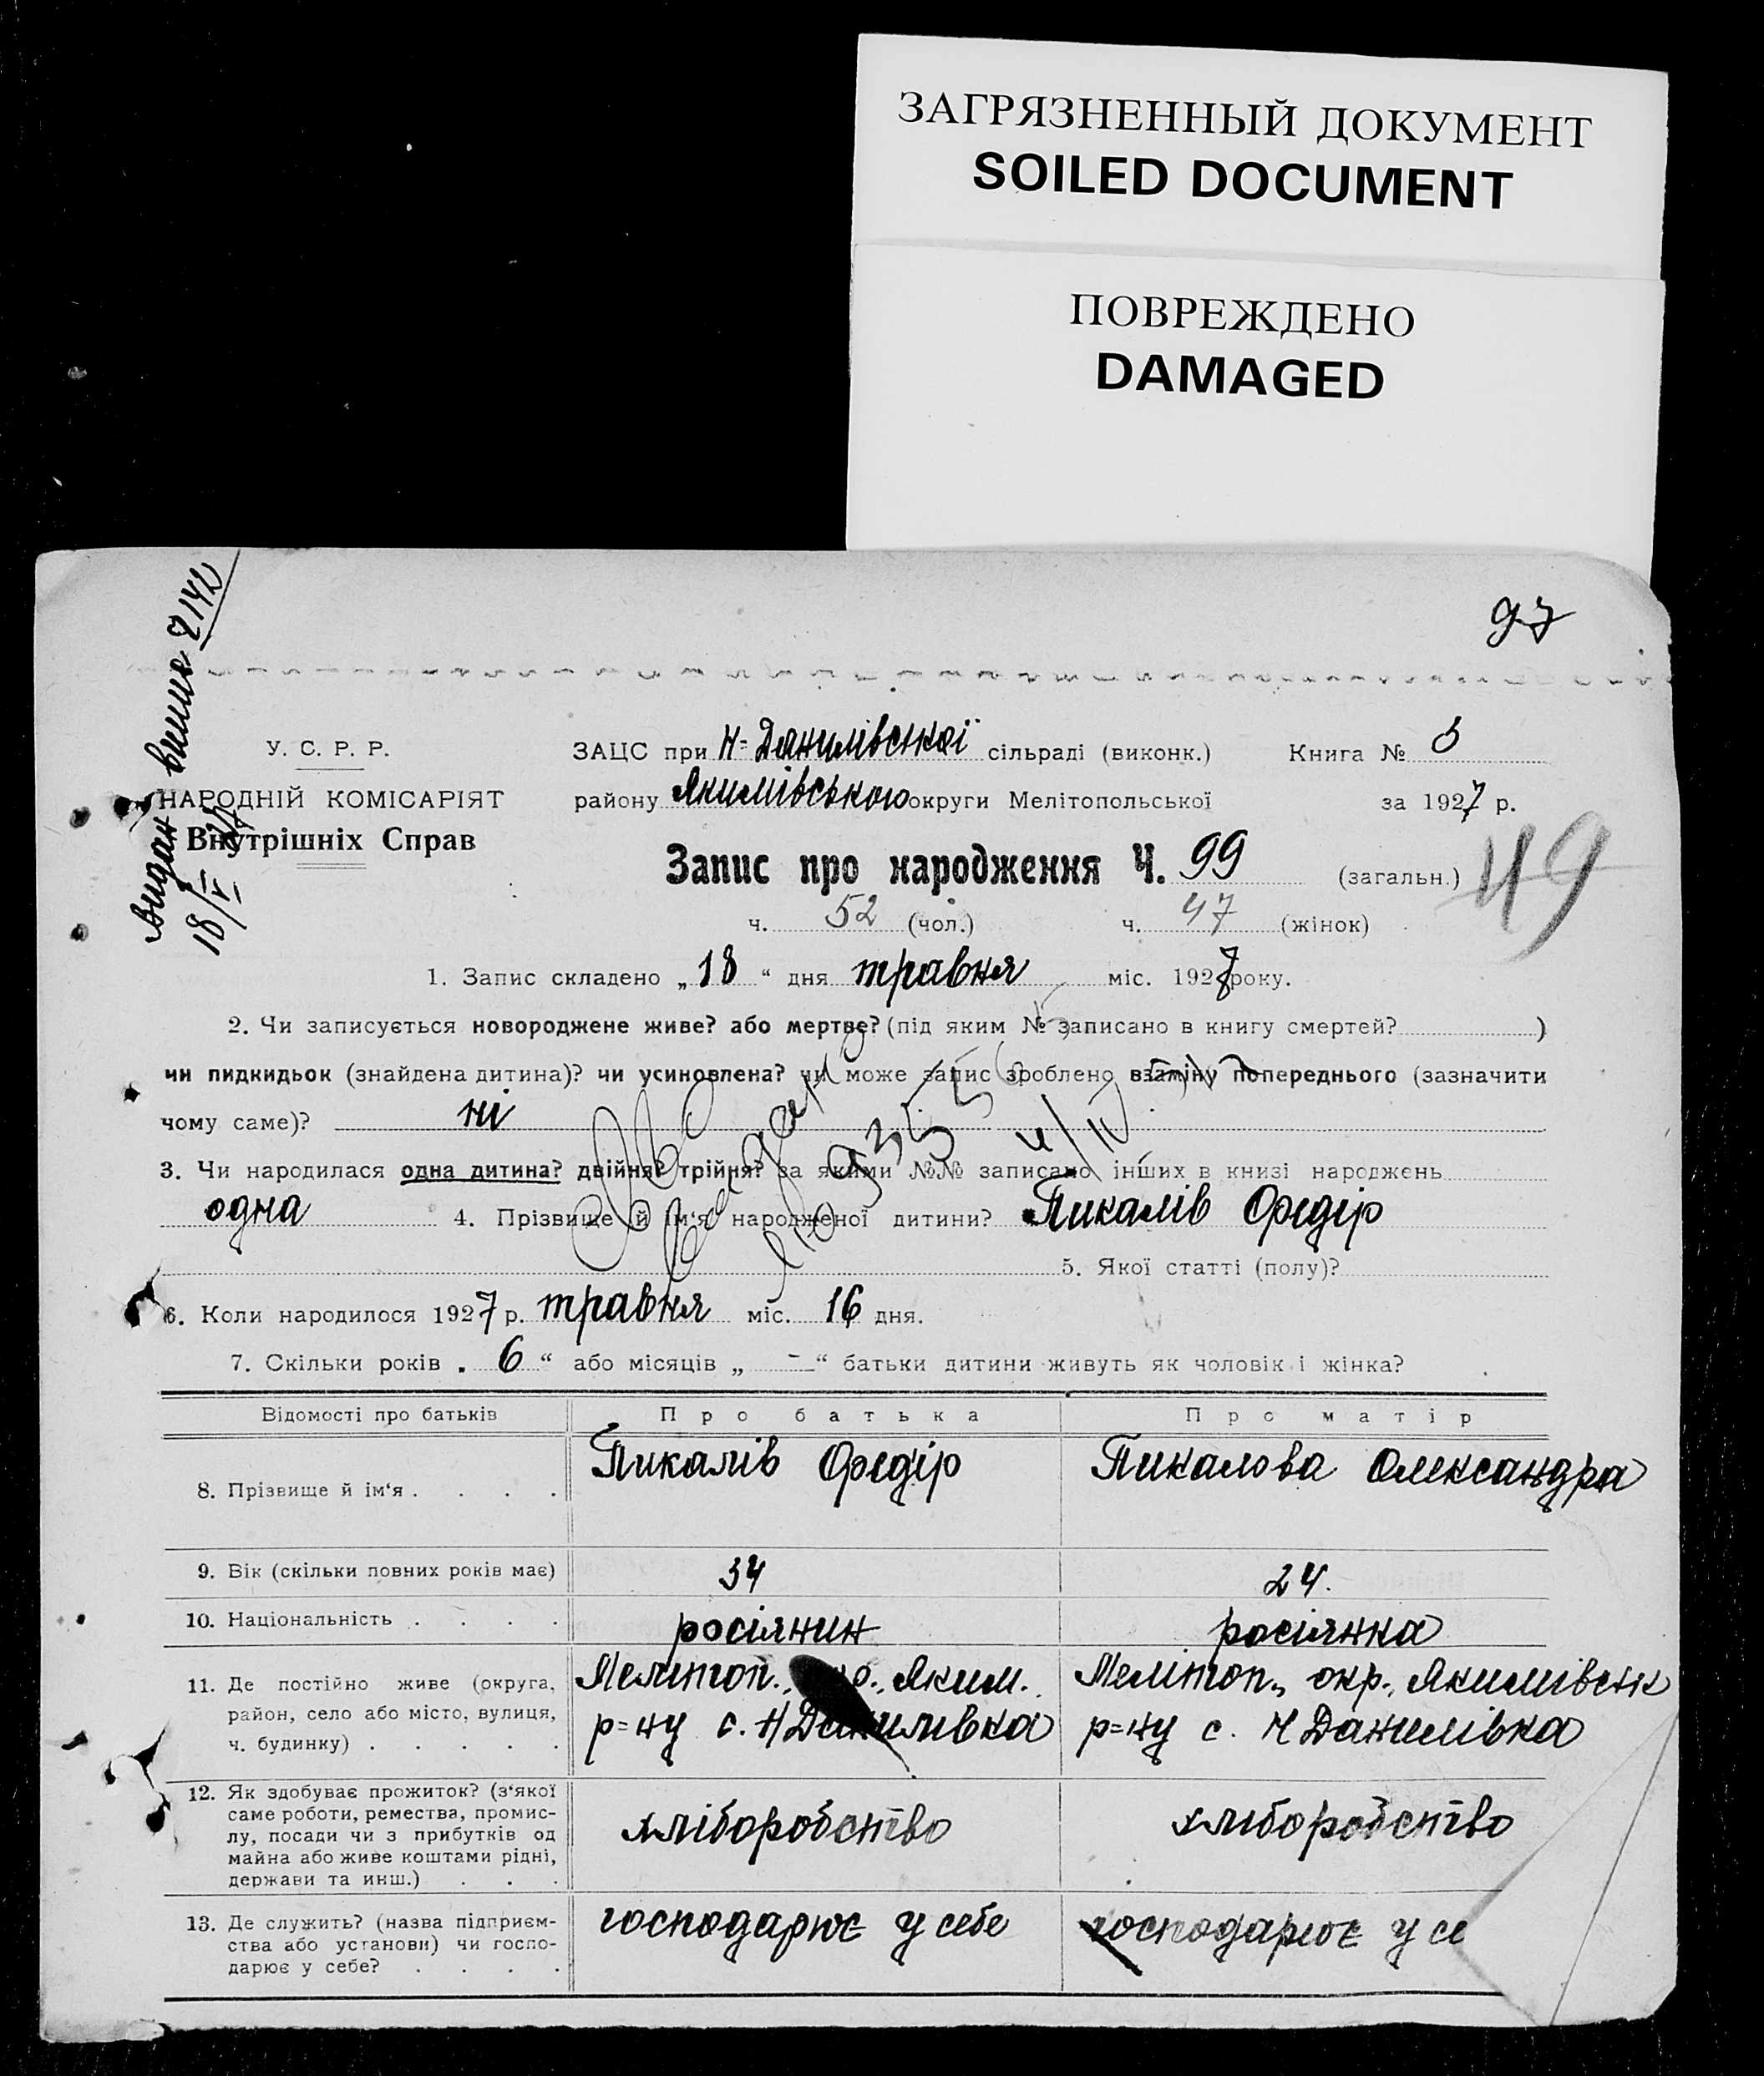 ЗАГРЯЗНЕННЫЙ ДОКУМЕНТ
SOILED DOCUMENT
ПОВРЕЖДЕНО
DAMAGED
97
видан вишив 2142
18/V
У. С. Р. Р.
НАРОДНІЙ КОМІСАРІЯТ
Внутрішніх Справ
ЗАЦС при Н-Данилівської сільраді (виконк.) Книга №
району Якимівського округи Мелітопольської за 1927 р.
Запис про народження Ч. 99 (загальн.) 49
ч. 52 (чол.) ч. 47 (жінок)
1. Запис складено „18“ дня травня міс. 1927 року.
2. Чи записується новороджене живе? або мертве? (під яким № записано в книгу смертей? )
чи пидкидьок (знайдена дитина)? чи усиновлена? чи може запис зроблено взаміну попереднього (зазначити
чому саме)? ні
3. Чи народилася одна дитина? двійня? трійня? за якими №№ записано інших в книзі народжень
одна 4. Прізвище й ім'я народженої дитини? Пикалів Федір
5. Якої статті (полу)?
6. Коли народилося 1927 р. травня міс. 16 дня.
7. Скільки років „6“ або місяців „-“ батьки дитини живуть як чоловік і жінка?
Відомості про батьків Про батька Про матір
8. Прізвище й ім'я . . . . Пикалів Федір Пикалова Олександра
9. Вік (скільки повних років має) 34 24.
10. Національність . . . . росіянин росіянка
11. Де постійно живе (округа, Меліноп., Яким. Меліноп., окр., Якимівськ
район, село або місто, вулиця, р=ну с. Н Данилівка р=ну с. Н Данилівка
ч. будинку) . . . . .
12. Як здобуває прожиток? (з'якої
саме роботи, ремества, промис-
лу, посади чи з прибутків од хліборобство хліборобство
майна або живе коштами рідні,
держави та инш.) . . .
13. Де служить? (назва підприєм- господарює у себе господарює у се
ства або установи) чи госпо-
дарює у себе? . . . .